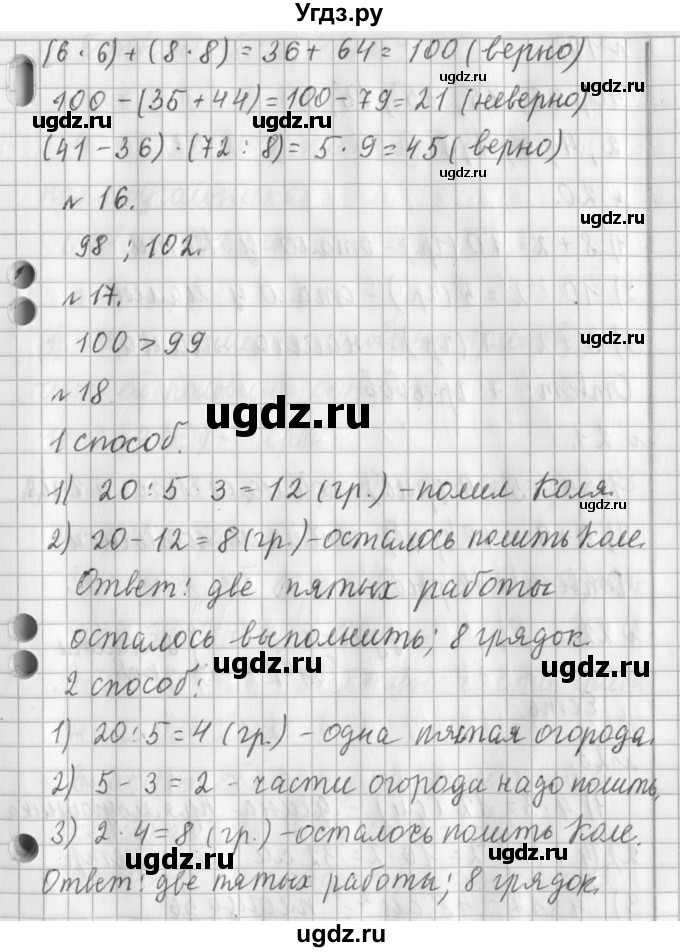 Угдз.ру
(6 · 6) + (8 · 8) = 36 + 64 = 100 (верно)
ugdz.ru
100 - (35 + 44) = 100 - 79 = 21 (неверно)
ugdz.ru ugdz.ru ugdz.ru
(41 - 36) · (72 : 8) = 5 · 9 = 45 (верно)
ugdz.ru
№ 16.
98 ; 102.
ugdz.ru
№ 17.
100 > 99
ugdz.ru
№ 18
ugdz.ru
1 способ.
1) 20 : 5 · 3 = 12 (гр.) - полил Коля.
ugdz.ru
2) 20 - 12 = 8 (гр.) - осталось полить Коле.
Ответ: две пятых работы
осталось выполнить; 8 грядок.
ugdz.ru ugdz.ru
2 способ:
1) 20 : 5 = 4 (гр.) - одна пятая огорода.
2) 5 - 3 = 2 - части огорода надо полить,
3) 2 · 4 = 8 (гр.) - осталось полить Коле.
ugdz.ru ugdz.ru
Ответ: две пятых работы; 8 грядок.